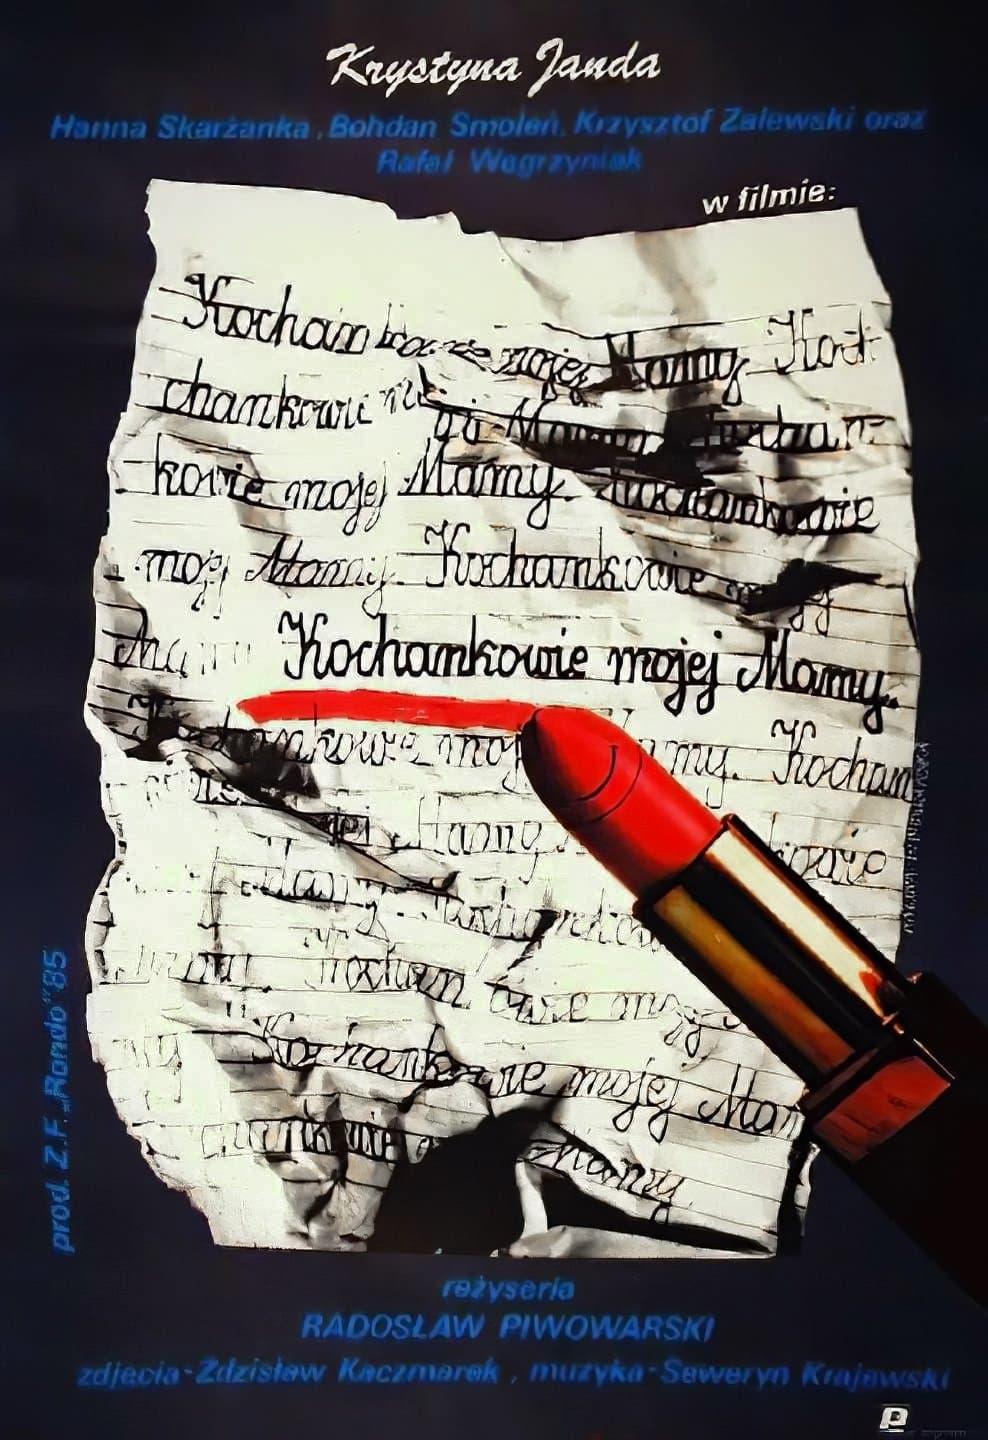 Krystyna Janda
Hanna Skarżanka, Bohdan Smoleń, Krzysztof Zalewski oraz
Rafał Węgrzyniak
w filmie:
Kochankowie mojej Mamy. Koch
chankowie mojej Mamy. Kochan
kowie mojej Mamy. Kochankowie
mojej Mamy. Kochankowie mojej
Mamy Kochankowie mojej Mamy.
Kochankowie mojej Mamy. Kochan
Mamy
Mamy.
Kochankowie mojej
Kochankowie mojej Mam
Mamy
prod. Z.F. „Rondo" 85
reżyseria
RADOSŁAW PIWOWARSKI
zdjęcia-Zdzisław Kaczmarek, muzyka-Seweryn Krajewski
P